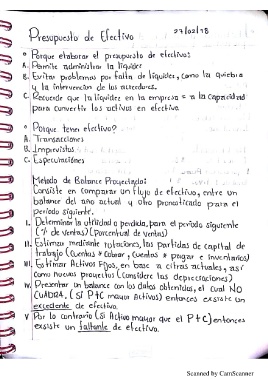 Presupuesto de Efectivo
27/02/18
° Porque elaborar el presupuesto de efectivo:
A. Permite administrar la liquidez
B. Evitar problemas por falta de liquidez, como la quiebra
y la intervencion de los acreedores.
C. Recuerde que la liquidez en la empresa = a la capacidad
para convertir los activos en efectivo.
° Porque tener efectivo?
A. Transacciones
B. Imprevistos
C. Especulaciones
Metodo de Balance Proyectado:
Consiste en comparar un flujo de efectivo, entre un
balance del año actual y otro pronosticado para el
periodo siguiente.
I. Determinar la utilidad o perdida, para el periodo siguiente
(% de ventas) (Porcentual de ventas)
II. Estimar mediante rotaciones, las partidas de capital de
trabajo (Cuentas * Cobrar, Cuentas * pagar e inventarios)
III. Estimar Activos Fijos, en base a cifras actuales, así
como nuevos proyectos (Considere las depreciaciones)
IV. Presentar un balance con los datos obtenidos, el cual NO
CUADRA, (Si P+C mayor Activos) entonces existe un
excedente de efectivo.
V. Por lo contrario (Si Activo mayor que el P+C) entonces
existe un faltante de efectivo.
Scanned by CamScanner